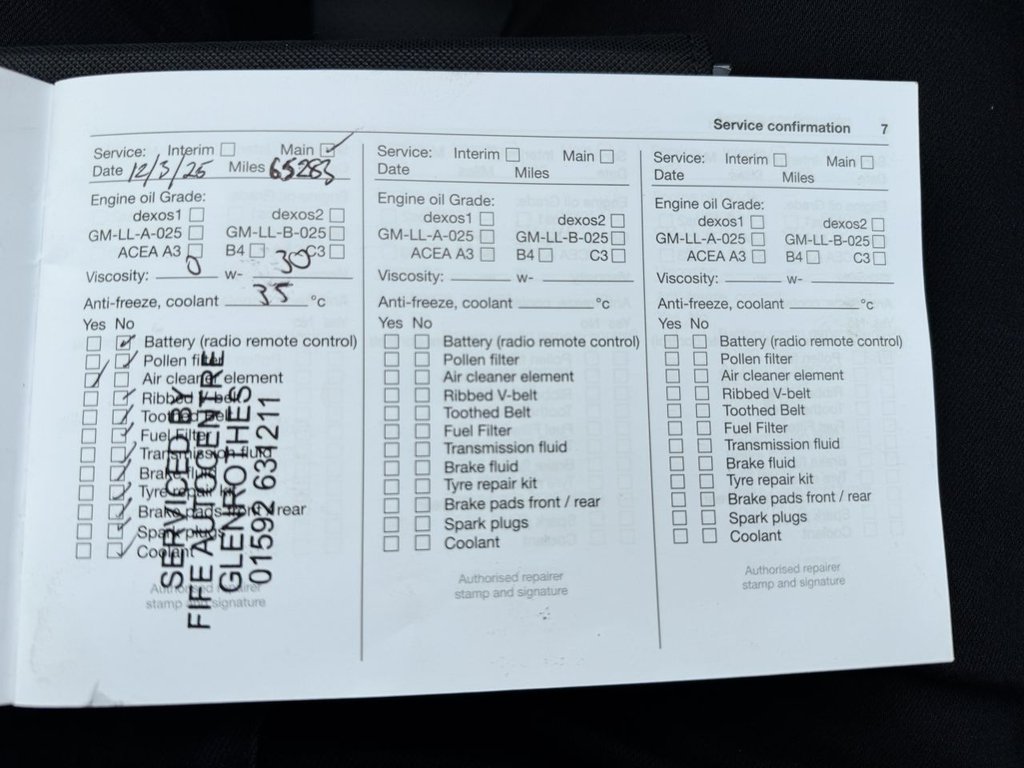 Service confirmation 7
Service: Interim Main
Date 12/3/25 Miles 65283
Engine oil Grade:
dexos1 dexos2
GM-LL-A-025 GM-LL-B-025
ACEA A3 B4 C3
Viscosity: 0 w- 30
Anti-freeze, coolant 35 °c
Yes No
Battery (radio remote control)
Pollen filter
Air cleaner element
Ribbed V-belt
Toothed Belt
Fuel Filter
Transmission fluid
Brake fluid
Tyre repair kit
Brake pads front / rear
Spark plugs
Coolant
Authorised repairer
stamp and signature
SERVICED BY
FIFE AUTOCENTRE
GLENROTHES
01592 631211
Service: Interim Main
Date Miles
Engine oil Grade:
dexos1 dexos2
GM-LL-A-025 GM-LL-B-025
ACEA A3 B4 C3
Viscosity: w-
Anti-freeze, coolant °c
Yes No
Battery (radio remote control)
Pollen filter
Air cleaner element
Ribbed V-belt
Toothed Belt
Fuel Filter
Transmission fluid
Brake fluid
Tyre repair kit
Brake pads front / rear
Spark plugs
Coolant
Authorised repairer
stamp and signature
Service: Interim Main
Date Miles
Engine oil Grade:
dexos1 dexos2
GM-LL-A-025 GM-LL-B-025
ACEA A3 B4 C3
Viscosity: w-
Anti-freeze, coolant °c
Yes No
Battery (radio remote control)
Pollen filter
Air cleaner element
Ribbed V-belt
Toothed Belt
Fuel Filter
Transmission fluid
Brake fluid
Tyre repair kit
Brake pads front / rear
Spark plugs
Coolant
Authorised repairer
stamp and signature